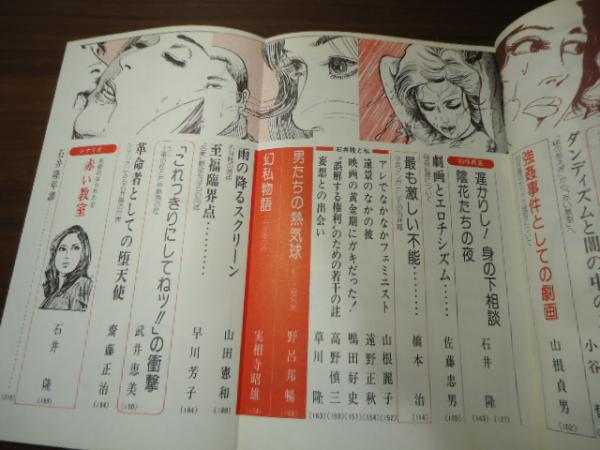 ダンディズムと闇の中の
小谷
強姦事件としての劇画
山根貞男
(102)
遅かりし!身の下相談
陰花たちの夜
石井 隆
(143)
(127)
劇画とエロチシズム………
佐藤忠男
(120)
最も激しい不能………
橋本 治
(114)
石井隆と私
アレでなかなかフェミニスト
山根麗子
(152)
遠景のなかの彼
遠野正秋
(154)
映画の黄金期にガキだった!
鴨田好史
(157)
"誤解する権利"のための若干の註
高野慎三
(159)
妄想との出会い
草川 隆
(163)
男たちの熱気球
野呂邦暢
幻私物語
実相寺昭雄
雨の降るスクリーン
山田憲和
(188)
至福臨界点………
早川芳子
(184)
「これっきりにしてねッ!!」の衝撃
武井恵美
革命者としての堕天使
齋藤正治
(94)
シナリオ
赤い教室
石井隆年譜
石井 隆
(165)